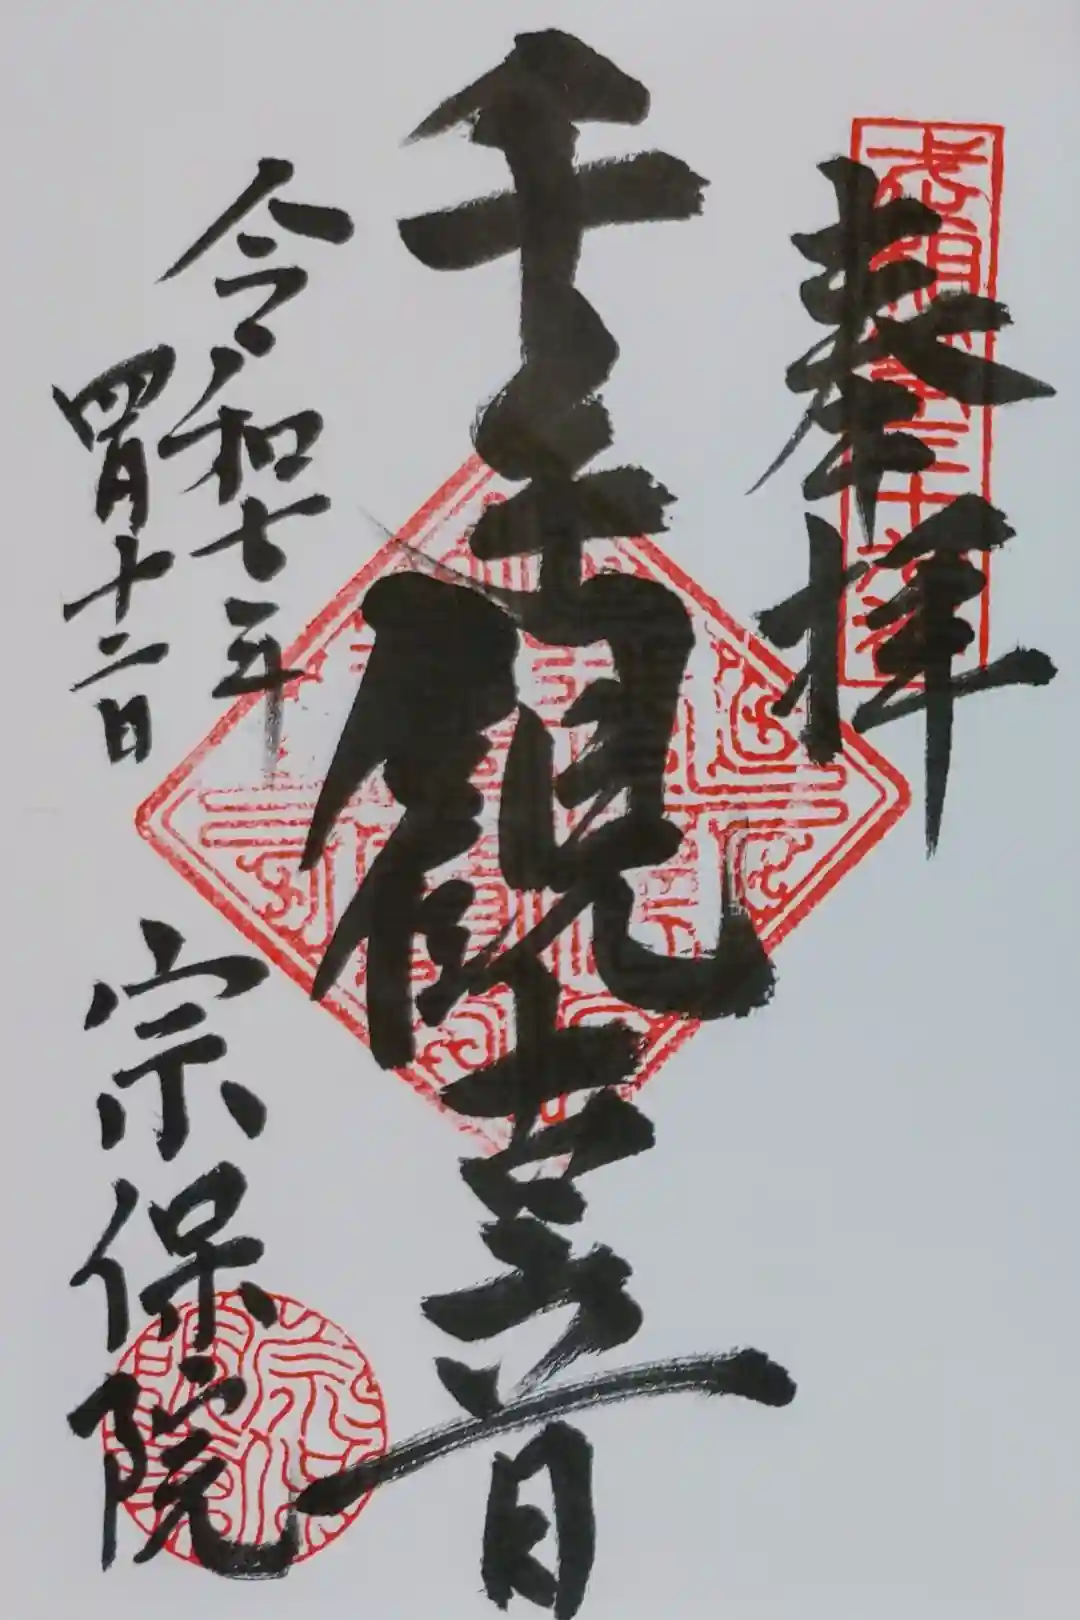 奉拝
千手観世音
令和七年
四月十二日
宗保院